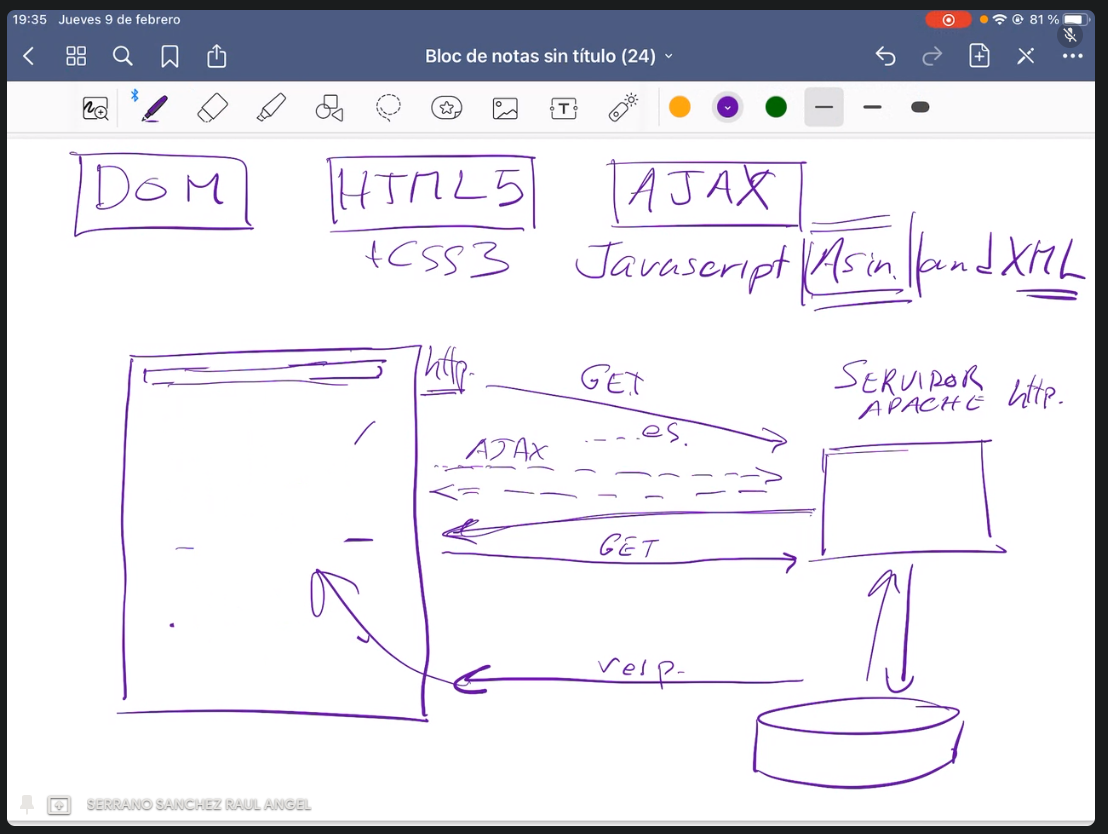 19:35 Jueves 9 de febrero
81 %
Bloc de notas sin título (24)
DOM
HTML5
AJAX
+CSS3
Javascript Asin. and XML
http.
GET
SERVIDOR
APACHE http.
....es.
AJAX
GET
resp.
SERRANO SANCHEZ RAUL ANGEL